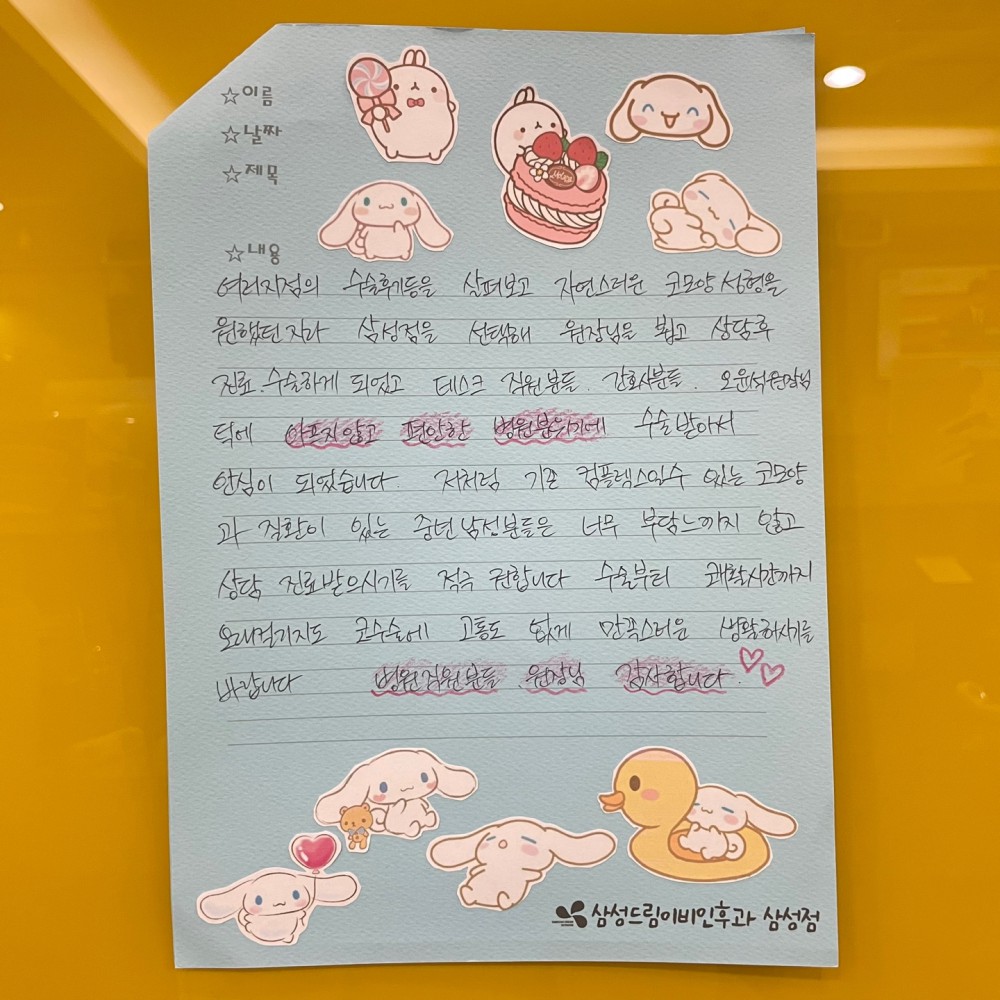 ☆이름
☆날짜
☆제목
☆내용
여러지점의 수술후기등을 살펴보고 자연스러운 코모양성형을
원했던지라 삼성점을 선택해 원장님을 뵙고 상담후
진료.수술하게 되었고 데스크 직원분들. 간호사분들. 오윤석원장님
덕에 아프지않고 편안한 병원분위기에 수술받아서
안심이 되었습니다. 저처럼 기존 컴플렉스일수 있는 코모양
과 질환이 있는 중년남성분들은 너무 부담느끼지 않고
상담 진료받으시기를 적극 권합니다 수술부터 쾌활시간까지
오래걸기지도 코수술에 고통도 없게 만족스러운 생활하시기를
바랍니다 병원직원분들.원장님 감사합니다.
삼성드림이비인후과 삼성점